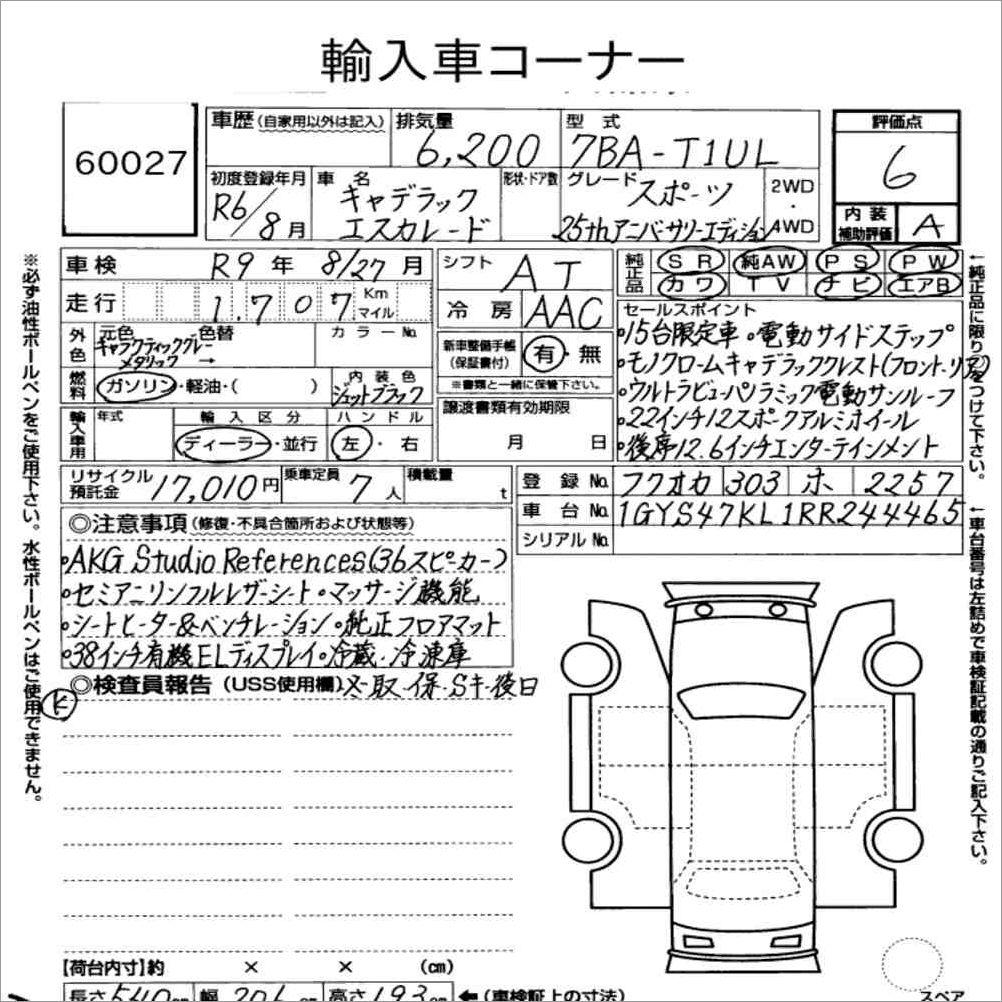 輸入車コーナー
60027
車歴 (自家用以外は記入)
排気量 6,200
型式 7BA-T1UL
評価点 6
初度登録年月 R6/8月
車名 キャデラック エスカレード
形状・ドア数
グレード スポーツ
25thアニバーサリーエディション
2WD・4WD
内装補助評価 A
車検 R9年 8/27月
シフト AT
純正品 SR 純AW PS PW
カワ TV ナビ エアB
走行 1.707 Km マイル
冷房 AAC
セールスポイント
・15台限定車・電動サイドステップ
・モノクロームキャデラッククレスト(フロント・リア)
・ウルトラビューパノラミック電動サンルーフ
・22インチ12スポークアルミホイール
・後席12.6インチエンターテインメント
外色 元色 色替 カラーNo.
ギャラクティックグレーメタリック →
新車整備手帳(保証書付) 有・無
※書類と一緒に保管下さい。
燃料 ガソリン・軽油・( )
内装色 ジェットブラック
輸入車用 年式 輸入区分 ハンドル
ディーラー・並行 左・右
譲渡書類有効期限
月 日
リサイクル預託金 17,010円
乗車定員 7人
積載量 t
登録No. フクオカ 303 ホ 2257
車台No. 1GYS47KL1RR244465
シリアルNo.
◎注意事項 (修復・不具合箇所および状態等)
・AKG Studio References(36スピーカー)
・セミアニリンフルレザーシート・マッサージ機能
・シートヒーター&ベンチレーション・純正フロアマット
・38インチ有機ELディスプレイ・冷蔵・冷凍庫
◎検査員報告 (USS使用欄) 冬・取・保・Sキ・後日
【荷台内寸】約 × × (cm)
長さ 540cm 幅 206 高さ 193cm
←(車検証上の寸法)
スペア
※必ず油性ボールペンをご使用下さい。水性ボールペンはご使用できません。
←純正品に限り○をつけて下さい。
←車台番号は左詰めで車検証記載の通りご記入下さい。